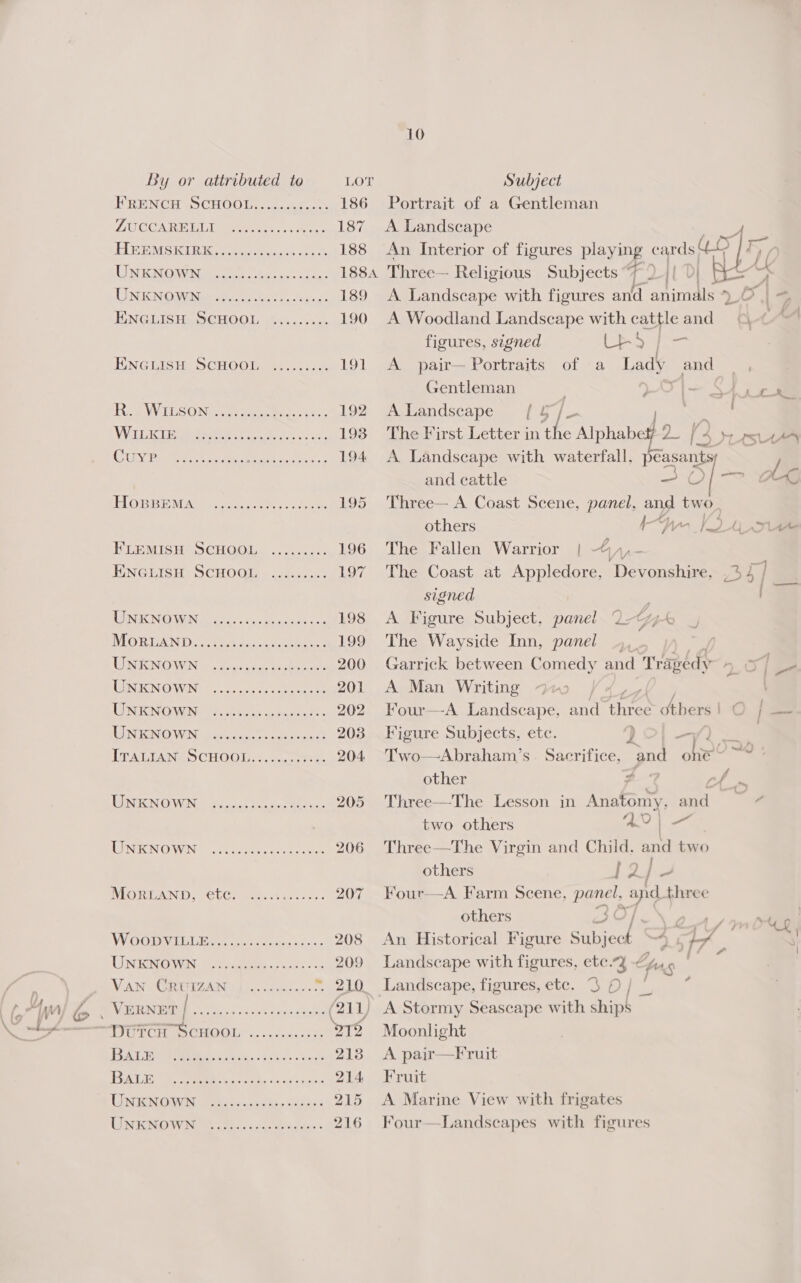 10
By or attributed to LOT Subject
FRENCH SCHOOL............ 186 Portrait of a Gentleman
ZUCCARELLI ............... 187 A Landscape
HEEMSKIRK................. 188 An Interior of figures playing cards
UNKNOWN .................. 188A Three—Religious Subjects
UNKNOWN .................. 189 A Landscape with figures and animals
ENGLISH SCHOOL ......... 190 A Woodland Landscape with cattle and
figures, signed
ENGLISH SCHOOL ......... 191 A pair—Portraits of a Lady and
Gentleman
R. WILSON .................. 192 A Landscape
WILKIE ..................... 193 The First Letter in the Alphabet
CUYP ........................ 194 A Landscape with waterfall, peasants
and cattle
HOBBEMA .................. 195 Three—A Coast Scene, panel, and two
others
FLEMISH SCHOOL ......... 196 The Fallen Warrior
ENGLISH SCHOOL ......... 197 The Coast at Appledore, Devonshire,
signed
UNKNOWN .................. 198 A Figure Subject, panel
MORLAND.................... 199 The Wayside Inn, panel
UNKNOWN .................. 200 Garrick between Comedy and Tragedy
UNKNOWN .................. 201 A Man Writing
UNKNOWN .................. 202 Four—A Landscape, and three others
UNKNOWN .................. 203 Figure Subjects, etc.
ITALIAN SCHOOL............ 204 Two—Abraham's Sacrifice, and one
other
UNKNOWN .................. 205 Three—The Lesson in Anatomy, and
two others
UNKNOWN .................. 206 Three—The Virgin and Child, and two
others
MORLAND, etc. ............ 207 Four—A Farm Scene, panel, and three
others
WOODVILLE.................. 208 An Historical Figure Subject
UNKNOWN .................. 209 Landscape with figures, etc.
VAN CRUIZAN ............ 210 Landscape, figures, etc.
VERNET ..................... 211 A Stormy Seascape with ships
DUTCH SCHOOL ............ 212 Moonlight
BALE ........................ 213 A pair—Fruit
BALE ........................ 214 Fruit
UNKNOWN .................. 215 A Marine View with frigates
UNKNOWN .................. 216 Four—Landscapes with figures